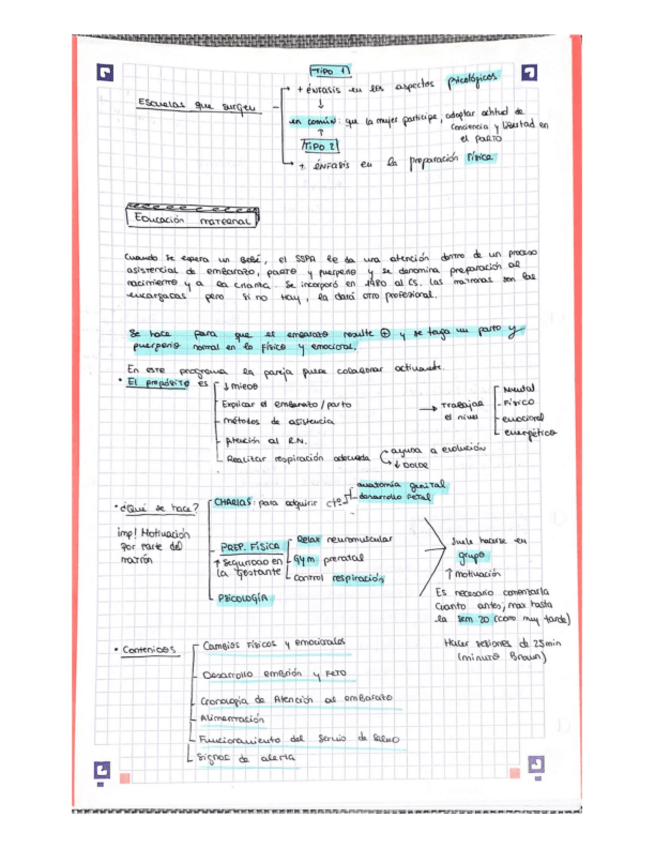 TIPO 1
Escuelas que surgen
+ énfasis en los aspectos psicológicos
en común: que la mujer participe, adoptar actitud de
conciencia y libertad en
el parto
TIPO 2
+ énfasis en la preparación física
Educación maternal
Cuando se espera un bebé, el SSPA le da una atención dentro de un proceso
asistencial de embarazo, parto y puerperio y se denomina preparación al
nacimiento y a la crianza. Se incorporó en 1980 al CS. Las matronas son las
encargadas pero si no hay, la dará otro profesional.
Se hace para que el embarazo resulte + y se tenga un parto y
puerperio normal en lo físico y emocional.
En este programa la pareja puede colaborar activamente.
• El propósito es
↓ miedo
Explicar el embarazo/parto
métodos de asistencia
Atención al R.N.
Realizar respiración adecuada
ayuda a evolución
↓ DOLOR
→ Trabajar
el nivel
Mental
Físico
emocional
energético
• ¿Qué se hace?
imp! Motivación
por parte del
matrón
CHARLAS: para adquirir cto
anatomía genital
desarrollo fetal
PREP. FÍSICA
↑ seguridad en
la gestante
Relax neuromuscular
Gym prenatal
Control respiración
PSICOLOGÍA
Suele hacerse en
grupo
↑ motivación
Es necesario comenzarla
cuanto antes, max hasta
la sem 20 (como muy tarde)
Hacer sesiones de 25min
(minuto Brown)
• Contenidos
Cambios físicos y emocionales
Desarrollo embrión y feto
Cronología de Atención al embarazo
Alimentación
Funcionamiento del Servicio de Salud
Signos de alerta